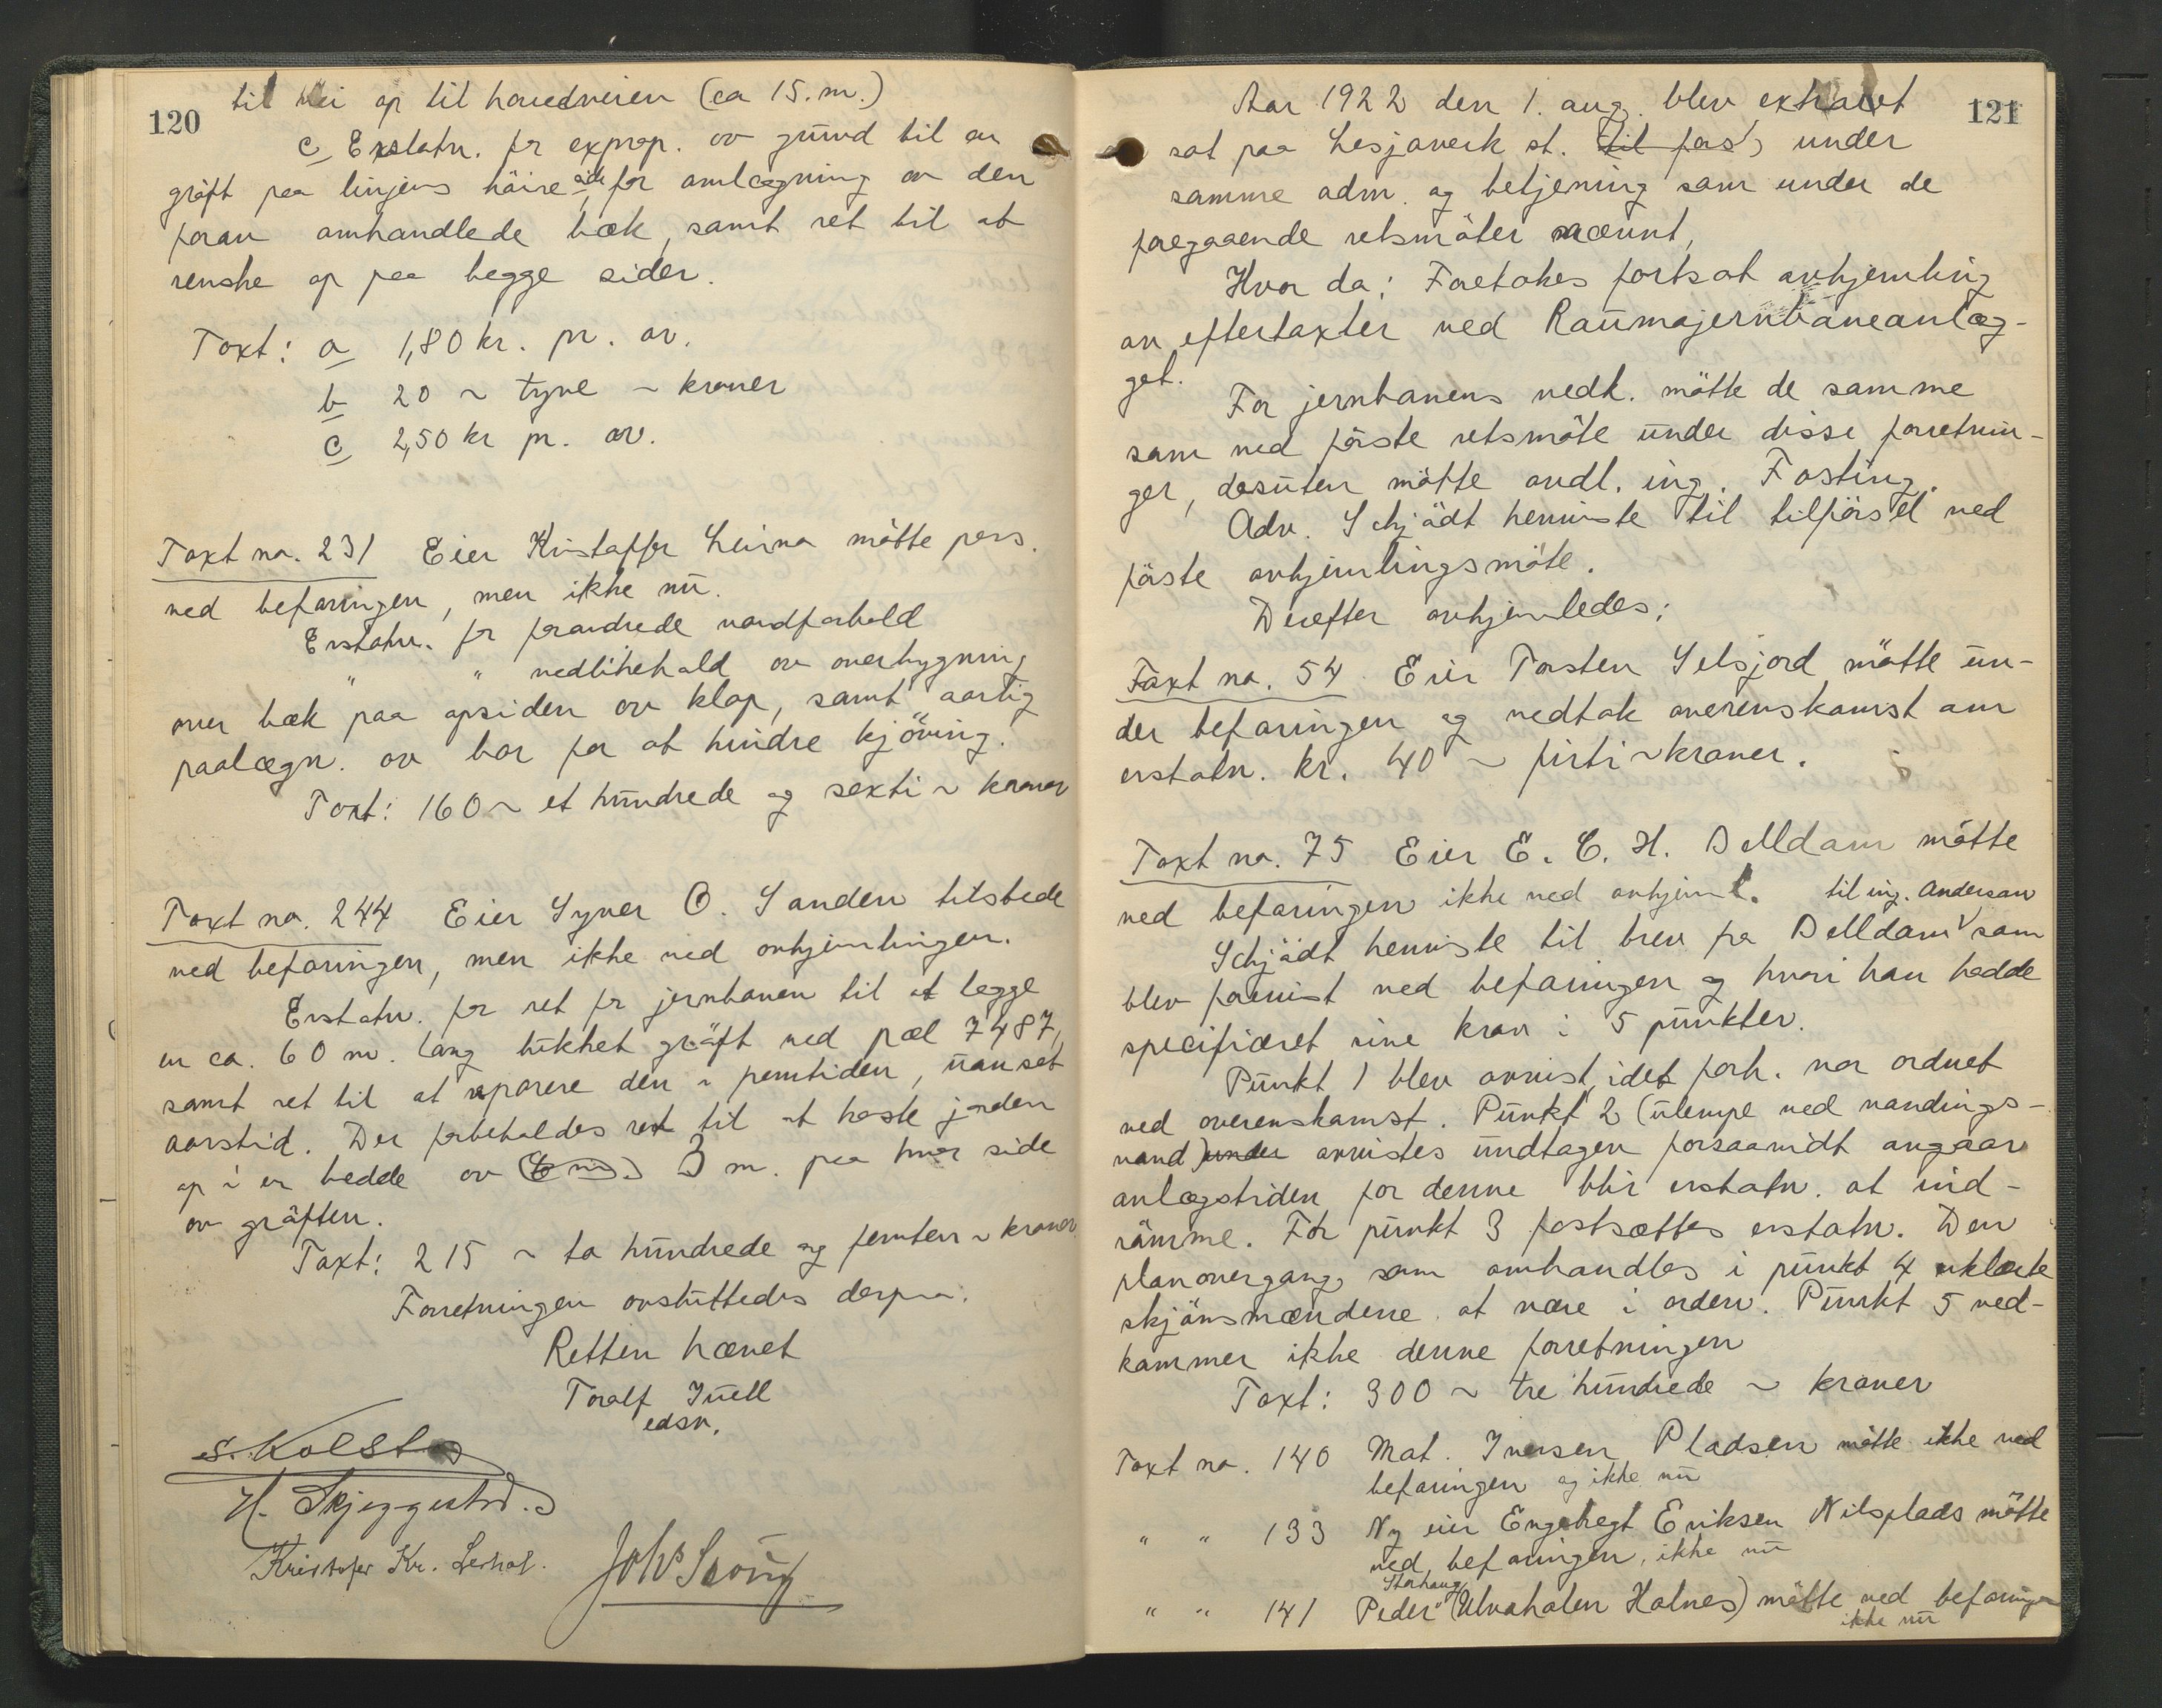 120
til vei op til hovedveien (ca 15. m.)
c, Erstatn. for exprop. av grund til en
gröft paa linjens höire side, for omlægning av den
foran omhandlede bæk, samt ret til at
renske op paa begge sider.
Taxt: a 1,80 kr. pr. ar.
b 20 ~ tyve ~ kroner
c 2,50 kr pr. ar.
Taxt no. 231 Eier Kristoffer Leirmo mötte pers.
ved befaringen, men ikke nu.
Erstatn. for forandrede vandforhold
" " vedlikehold av overbygning
over bæk paa opsiden av klop, samt aarlig
paalægn. av bar for at hindre kjöving.
Taxt: 160 ~ et hundrede og sexti ~ kroner
Taxt no. 244 Eier Syver O. Sanden tilstede
ved befaringen, men ikke ved avhjemlingen.
Erstatn. for ret for jernbanen til at lægge
en ca. 60 m. lang lukket gröft ved pæl 7487,
samt ret til at reparere den i fremtiden, uanset
aarstid. Der forbeholdes ret til at kaste jorden
op i en bredde av (6 m.) 3 m. paa hver side
av gröften.
Taxt: 215 ~ to hundrede og femten ~ kroner
Forretningen avsluttedes derpaa.
Retten hævet
Toralf Juell
edsv.
S. Kolstad
H. Skjeggestad.
Kristofer Kr. Lerhol.
Johs
121
Aar 1922 den 1. aug. blev extraret
sat paa Lesjaverk st. til fors, under
samme adm. og betjening som under de
foregaaende retsmöter nævnt,
Hvor da: Foretokes fortsat avhjemling
av eftertaxter ved Raumajernbaneanlæg-
get.
For jernbanens vedk. mötte de samme
som ved förste retsmöte under disse forretnin-
ger, desuten mötte avdl. ing. Fasting.
Adv. Schjödt henviste til tilförsel ved
förste avhjemlingsmöte.
Derefter avhjemledes:
Taxt no. 54 Eier Torsten Selsjord mötte un-
der befaringen og vedtok overenskomst om
erstatn. kr. 40 ~ firti ~ kroner.
Taxt no. 75 Eier E. C. H. Delldam mötte
ved befaringen ikke ved avhjeml. til ing. Andersen
Schjödt henviste til brev fra Delldam som
blev forevist ved befaringen og hvori han hadde
specificeret sine krav i 5 punkter.
Punkt 1 blev avvist, idet forh. var ordnet
ved overenskomst. Punkt 2 (ulempe ved vandings-
vand) under avvistes undtagen forsaavidt angaar
anlægstiden for denne blir erstatn. at ind-
römme. For punkt 3 fastsættes erstatn. Den
planovergang som omhandles i punkt 4 erklærte
skjönsmændene at være i orden. Punkt 5 ved-
kommer ikke denne forretningen
Taxt: 300 ~ tre hundrede ~ kroner
Taxt no. 140 Mat. Iversen Pladsen mötte ikke ved
befaringen og ikke nu
" " 133 Ny eier Engebregt Eriksen Nilsplads mötte
ved befaringen, ikke nu
Storhaug
" " 141 Peder (Ulvaholen Holnes) mötte ved befaringen
ikke nu